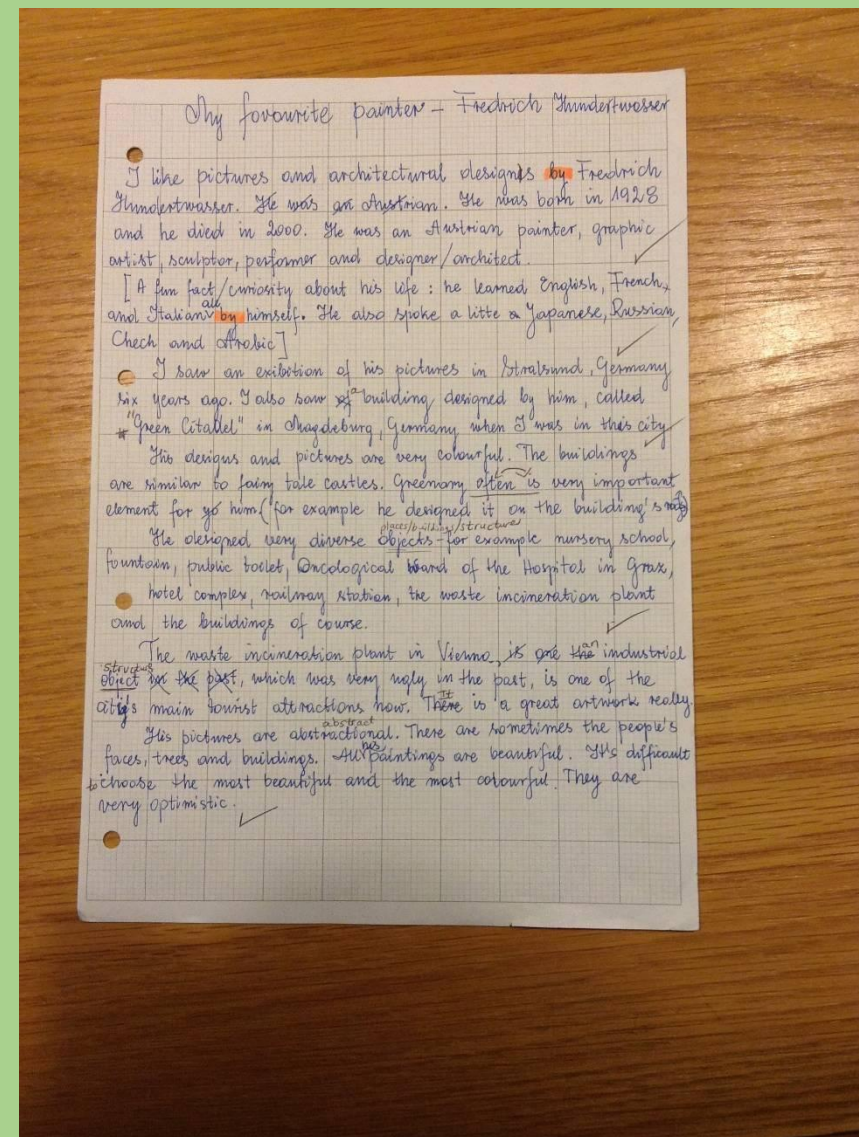 My favourite painter - Fredrich Hundertwasser
I like pictures and architectural designs by Fredrich
Hundertwasser. He was an Austrian. He was born in 1928
and he died in 2000. He was an Austrian painter, graphic
artist, sculptor, performer and designer/architect.
[A fun fact/curiosity about his life: he learned English, French,
all
and Italian by himself. He also spoke a litte a Japanese, Russian,
Chech and Arabic]
I saw an exibition of his pictures in Stralsund, Germany
six years ago. I also saw a building, designed by him, called
"Green Citadel" in Magdeburg, Germany when I was in this city.
His designs and pictures are very colourful. The buildings
are similar to fairy tale castles. Greenery often is very important
element for him (for example he designed it on the building's roof)
places/buildings/structures
He designed very diverse objects - for example nursery school,
fountain, public toilet, Oncological ward of the Hospital in Graz,
hotel complex, railway station, the waste incineration plant
and the buildings of course.
The waste incineration plant in Vienna, is one the an industrial
structure
object in the past, which was very ugly in the past, is one of the
It
city's main tourist attractions now. There is a great artwork really.
abstract
His pictures are abstractional. There are sometimes the people's
his
faces, trees and buildings. All paintings are beautiful. It's difficault
to choose the most beautiful and the most colourful. They are
very optimistic.